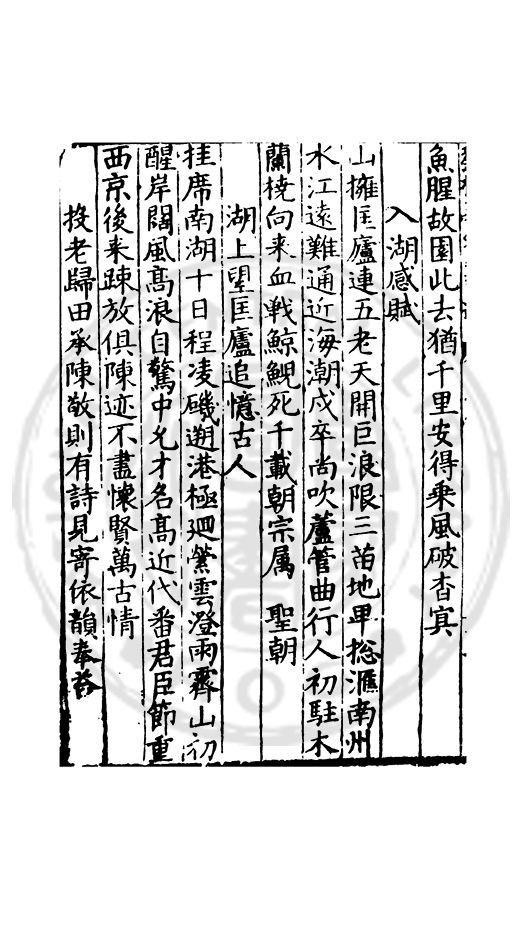 魚腥故園此去猶千里安得乗風破杳㝠
入湖感賦
山擁匡廬連五老天開巨浪限三苗地卑総滙南州
水江遠難通近海潮戍卒尚吹蘆管曲行人初駐木
蘭橈向来血戦鯨鯢死千載朝宗属 聖朝
湖上望匡廬追憶古人
挂席南湖十日程凌磯遡港極廻縈雲澄雨霽山初
醒岸闊風髙浪自驚中允才名髙近代番君臣節重
西京後来踈放俱陳迹不盡懐賢萬古情
投老歸田承陳敬則有詩見寄依韻奉荅